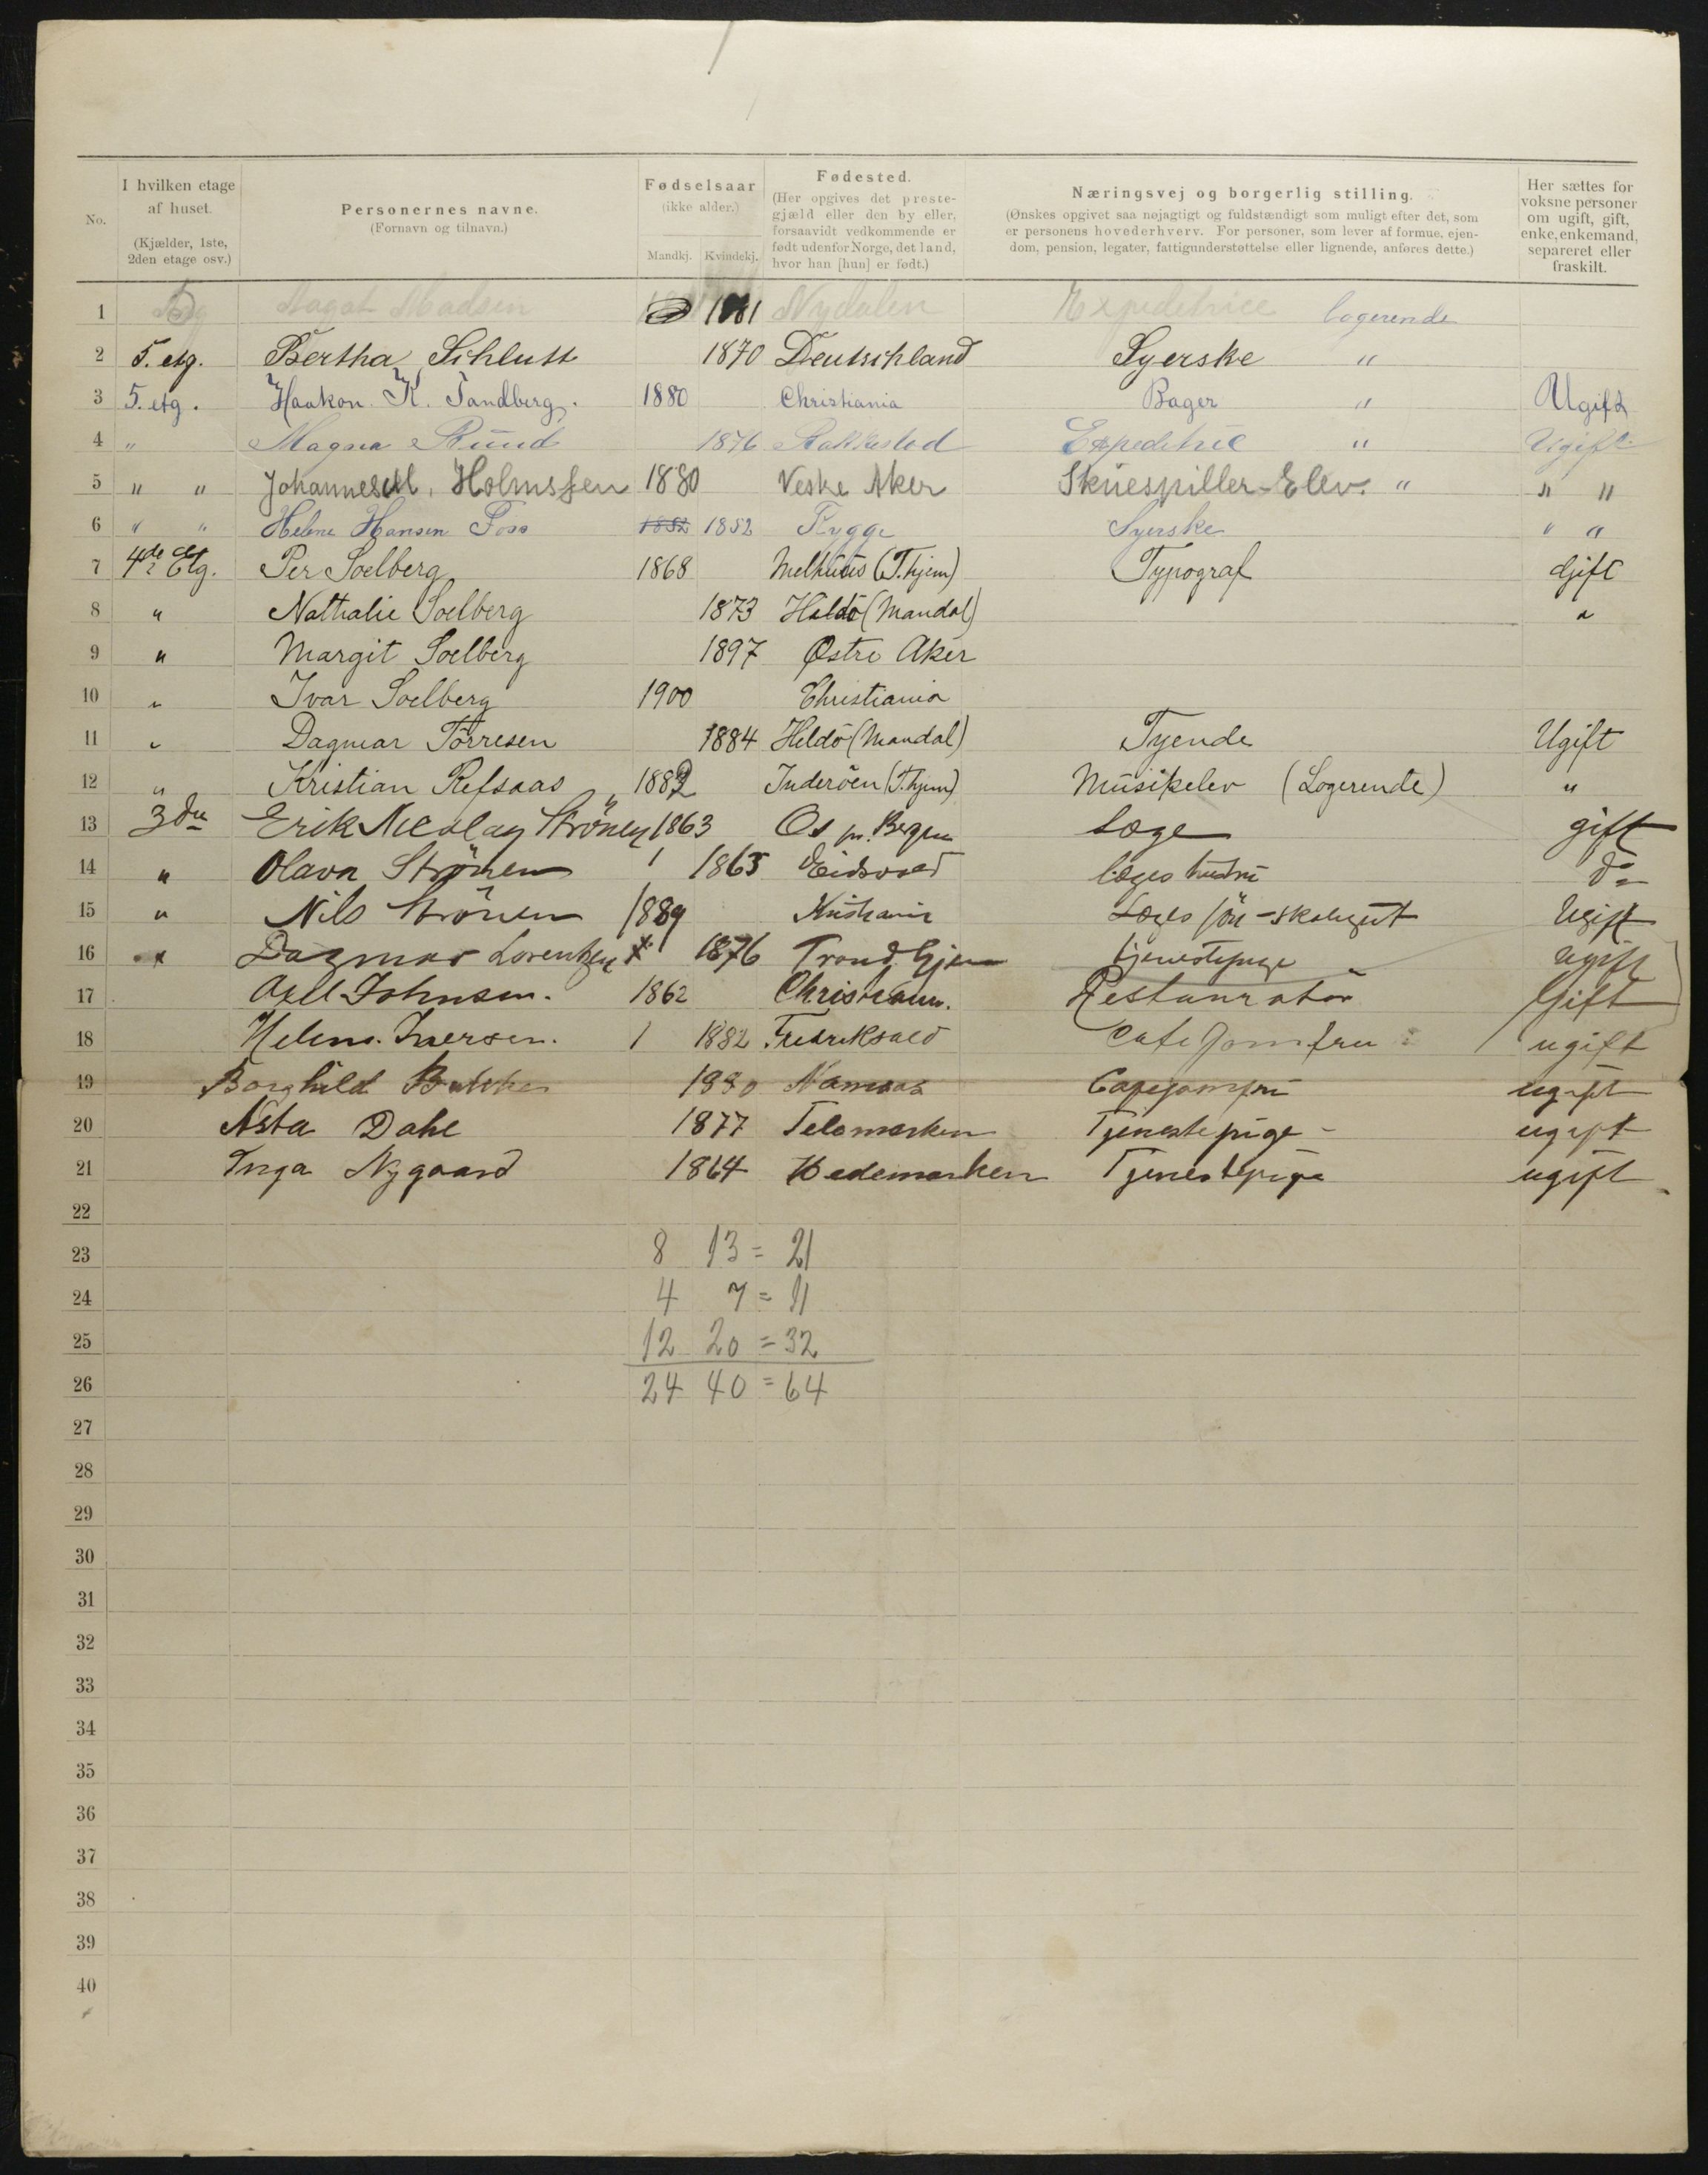 No.
I hvilken etage af huset.
(Kjælder, 1ste, 2den etage osv.)
Personernes navne.
(Fornavn og tilnavn.)
Fødselsaar
(ikke alder.)
Mandkj. Kvindekj.
Fødested.
(Her opgives det prestegjæld eller den by eller, forsaavidt vedkommende er født udenfor Norge, det land, hvor han [hun] er født.)
Næringsvej og borgerlig stilling.
(Ønskes opgivet saa nøjagtigt og fuldstændigt som muligt efter det, som er personens hovederhverv. For personer, som lever af formue, ejendom, pension, legater, fattigunderstøttelse eller lignende, anføres dette.)
Her sættes for voksne personer om ugift, gift, enke, enkemand, separeret eller fraskilt.
1 Aagot Madsen 1881 Nydalen Expeditrice logerende
2 5. etg. Bertha Schlutt 1870 Deutschland Syerske "
3 5. etg. Haakon K. Sandberg. 1880 Christiania Bager " Ugift
4 " Magna Ruud 1876 Expeditric " Ugift
5 " " Johannes M. Holmssen 1880 Vestre Aker Skuespiller-Elev. " " "
6 " " Helene Hansen Foss 1852 1852 Rygge Syerske " "
7 4de Etg. Per Soelberg 1868 Melhuus (T.hjem) Typograf Gift
8 " Nathalie Soelberg 1873 (Mandal) "
9 " Margit Soelberg 1897 Østre Aker
10 " Ivar Soelberg 1900 Christiania
11 " Dagmar Törresen 1884 (Mandal) Tyende Ugift
12 " Kristian Refsaas 1882 Inderöen (T.hjem) Musikelev (Logerende) "
13 3die Erik Nicolay Strönen 1863 Os pr. Bergen Læge gift
14 " Olava Strönen 1 1865 Eidsvold Læges hustru do
15 " Nils Strönen 1889 Kristiania Læges sön - skolegut Ugift
16 " Dagmar Lorentzen * 1876 Trondhjem tjenestepige ugift
17 Axel Johnsen. 1862 Christiania. Restauratör Gift
18 Helene Iversen. 1 1882 Fredrikshald Cafe Jomfru ugift
19 Borghild 1880 Namsos Cafejomfru ugift
20 Asta Dahl 1877 Telemarken Tjenestepige - ugift
21 Inga Nygaard 1864 Hedemarken Tjenestepige ugift
22
23 8 13 = 21
24 4 7 = 11
25 12 20 = 32
26 24 40 = 64
27
28
29
30
31
32
33
34
35
36
37
38
39
40